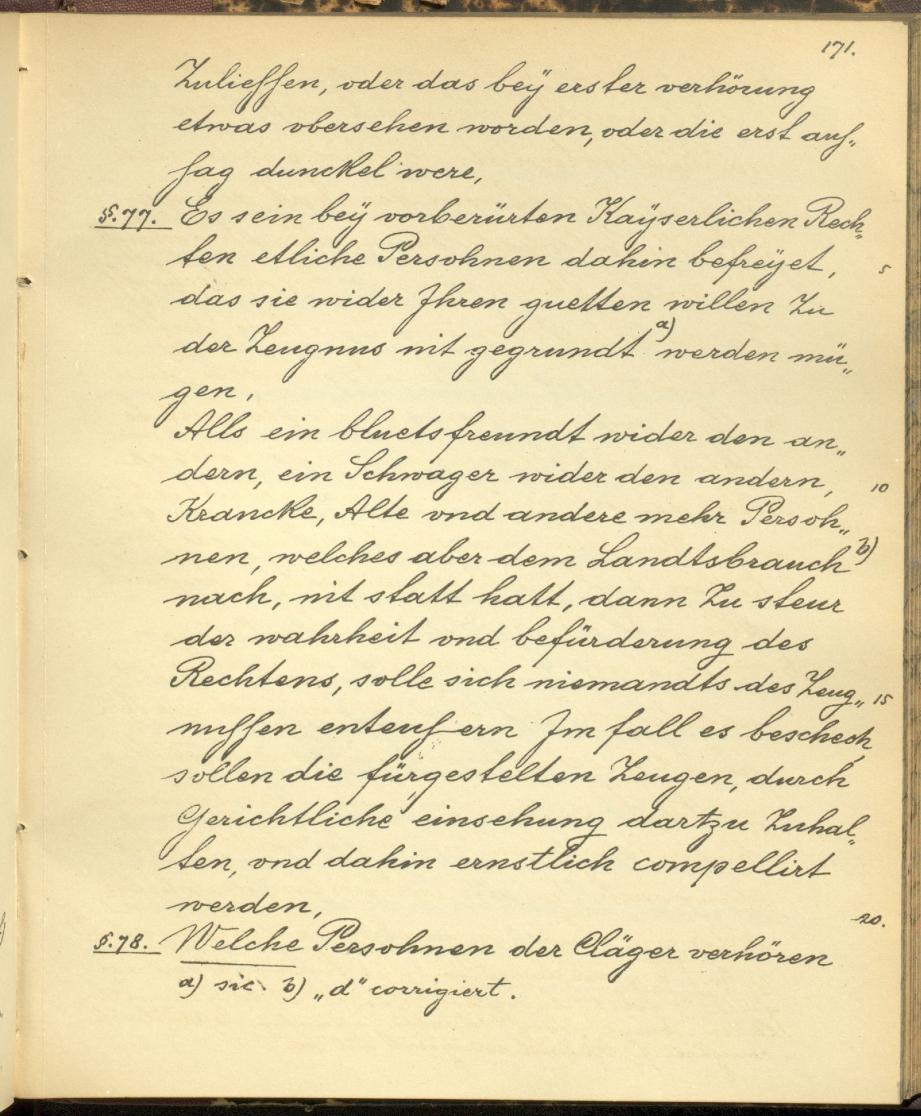 171.
Zulieffen, oder das beÿ erster verhörung
etwas vbersehen worden, oder die erst auf„
sag dunckel were,
§.77. Es sein beÿ vorberürten Kaÿserlichen Rech„
ten etliche Persohnen dahin befreÿet, 5
das sie wider Ihren guetten willen Zu
der Zeugnus nit gegrundt a) werden mü„
gen,
Alls ein bluetsfreundt wider den an„
dern, ein Schwager wider den andern, 10
Krancke, Alte vnd andere mehr Persoh„
nen, welches aber dem Landtsbrauch b)
nach, nit statt hatt, dann Zu steur
der wahrheit vnd befürderung des
Rechtens, solle sich niemandts des Zeug„ 15
nussen enteussern Im fall es beschech,
sollen die fürgestelten Zeugen, durch
Gerichtliche einsehung dartzu Zuhal„
ten, vnd dahin ernstlich compellirt
werden, 20.
§.78. Welche Persohnen der Cläger verhören
a) sic. b) „d" corrigiert.